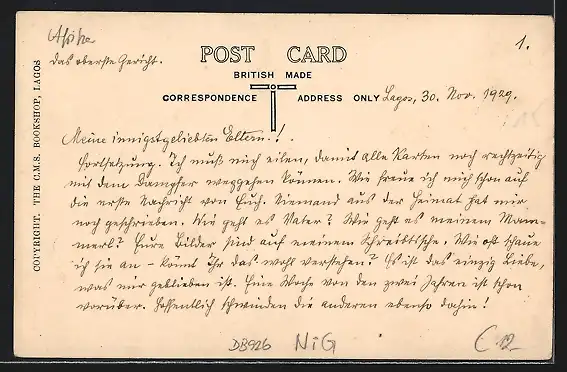 Afrika
das oberste Gericht.
1.
POST CARD
BRITISH MADE
CORRESPONDENCE ADDRESS ONLY
COPYRIGHT. THE C.M.S. BOOKSHOP, LAGOS
Lagos, 30. Nov. 1929.
Meine innigstgeliebten Eltern!
Fortsetzung. Ich muß mich eilen, damit alle Karten noch rechtzeitig
mit dem Dampfer weggehen können. Wie freue ich mich schon auf
die erste Nachricht von Euch. Niemand aus der Heimat hat mir
noch geschrieben. Wie geht es Vater? Wie geht es meinem Mam-
merl? Eure Bilder sind auf meinem Schreibtische. Wie oft schaue
ich sie an – könnt Ihr das wohl verstehen? Es ist das einzig Liebe,
was mir geblieben ist. Eine Woche von den zwei Jahren ist schon
vorüber. Hoffentlich schwinden die anderen ebenso dahin!
DB926 NiG C 12